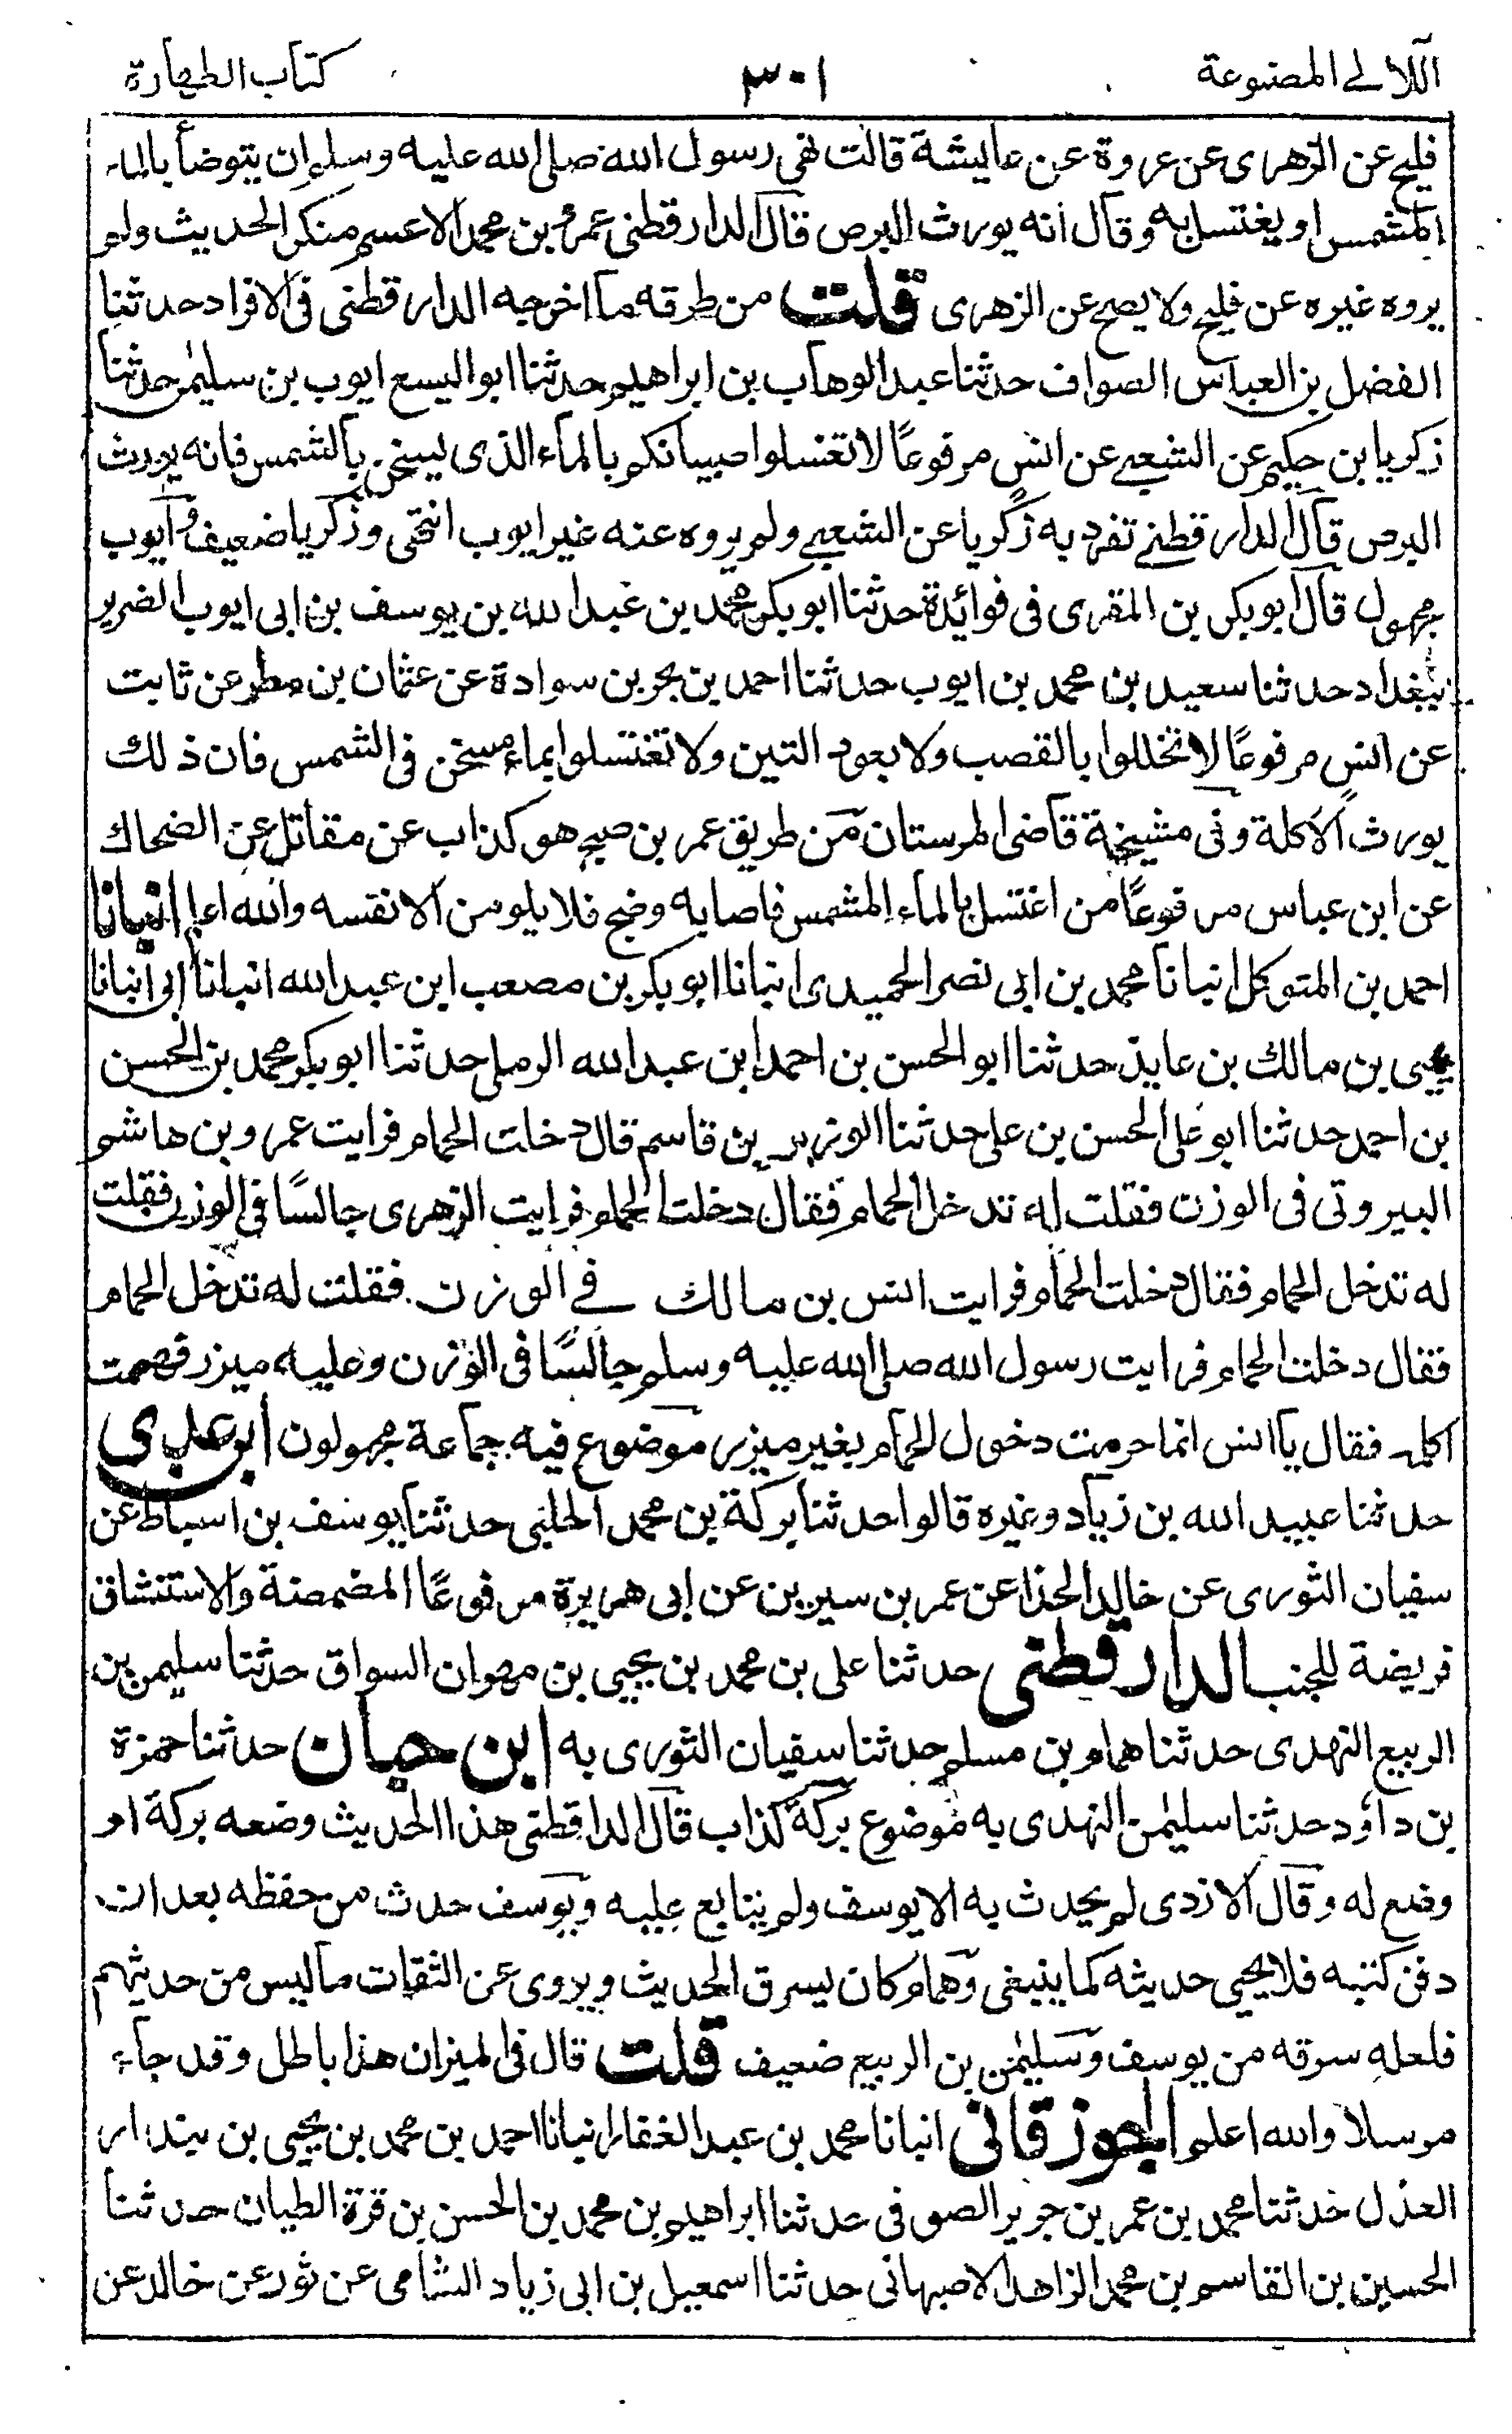 اللآلى المصنوعة
٣٠١
كتاب الطهارة
فليح عن الزهرى عن عروة عن عايشة قالت نهى رسول الله صلى الله عليه وسلم ان يتوضأ بالماء
المشمس او يغتسل به وقال انه يورث البرص قال الدارقطنى عمرو بن محمد الاعسم منكر الحديث ولم
يروه غيره عن فليح ولا يصح عن الزهرى قلت من طرقه ما اخرجه الدارقطنى فى الافراد حدثنا
الفضل بن العباس الصواف حدثنا عبد الوهاب بن ابراهيم حدثنا ابو اليسع ايوب بن سليمٰن حدثنا
زكريا بن حكيم عن الشعبے عن انس مرفوعًا لا تغسلوا صبيانكم بالماء الذى يسخن بالشمس فانه يورث
البرص قال الدارقطنے تفرد به زكريا عن الشعبے ولم يروه عنه غير ايوب انتهى وزكريا ضعيف وايوب
مجهول قال ابو بكر بن المقرى فى فوائدة حدثنا ابو بكر محمد بن عبد الله بن يوسف بن ابى ايوب الضرير
ببغداد حدثنا سعيد بن محمد بن ايوب حدثنا احمد بن بحر بن سوادة عن عثمان بن مطر عن ثابت
عن انس مرفوعًا لا تخللوا بالقصب ولا بعود التين ولا تغتسلوا بماء مسخن فى الشمس فان ذلك
يورث الاكلة وفى مشيخة قاضى المرستان من طريق عمر بن صبح هو كذاب عن مقاتل عن الضحاك
عن ابن عباس مرفوعًا من اغتسل بالماء المشمس فاصابه وضح فلا يلومن الا نفسه والله اعلم انبانا
احمد بن المتوكل انبانا محمد بن ابى نصر الحميدى انبانا ابو بكر بن مصعب ابن عبد الله انبانا ابى انبانا
يحيى بن مالك بن عايذ حدثنا ابو الحسن بن احمد ابن عبد الله الرملى حدثنا ابو بكر محمد بن الحسن
بن احمد حدثنا ابو على الحسن بن على حدثنا الوزير بن قاسم قال دخلت الحمام فرايت عمرو بن هاشم
البيروتى فى الوزن فقلت له تدخل الحمام فقال دخلت الحمام فرايت الزهرى جالسًا فى الوزن فقلت
له تدخل الحمام فقال دخلت الحمام فرايت انس بن مالك فے الوزن فقلت له تدخل الحمام
فقال دخلت الحمام فرايت رسول الله صلى الله عليه وسلم جالسًا فى الوزن وعليه ميزر فهممت
اكلمه فقال يا انس انما حرمت دخول الحمام بغير ميزر موضوع فيه جماعة مجهولون ابن عدى
حدثنا عبيد الله بن زياد وغيره قالوا حدثنا بركة بن محمد الحلبى حدثنا يوسف بن اسباط عن
سفيان الثورى عن خالد الحذا عن عمر بن سيرين عن ابى هريرة مرفوعًا المضمضة والاستنشاق
فريضة للجنب الدارقطنى حدثنا على بن محمد بن يحيى بن مهران السواق حدثنا سليمن بن
الربيع النهدى حدثنا همام بن مسلم حدثنا سفيان الثورى به ابن حبان حدثنا حمزة
بن داؤد حدثنا سليمٰن النهدى به موضوع بركة كذاب قال الداقطنى هذا الحديث وضعه بركة او
وضع له وقال الازدى لم يحدث به الا يوسف ولم يتابع عليه ويوسف حدث من حفظه بعد ان
دفن كتبه فلا يجى حديثه كما ينبغى وهمام كان يسرق الحديث ويروى عن الثقات ما ليس من حديثهم
فلعله سرقه من يوسف وسليمٰن بن الربيع ضعيف قلت قال فى الميزان هذا باطل وقد جاء
مرسلا والله اعلم الجوزقانى انبانا محمد بن عبد الغفار انبانا احمد بن محمد بن يحيى بن بندار
العدل حدثنا محمد بن عمر بن جرير الصوفى حدثنا ابراهيم بن محمد بن الحسن بن قرة الطيان حدثنا
الحسين بن القاسم بن محمد الزاهد الاصبهانى حدثنا اسمعيل بن ابى زياد الشامى عن ثور عن خالد عن